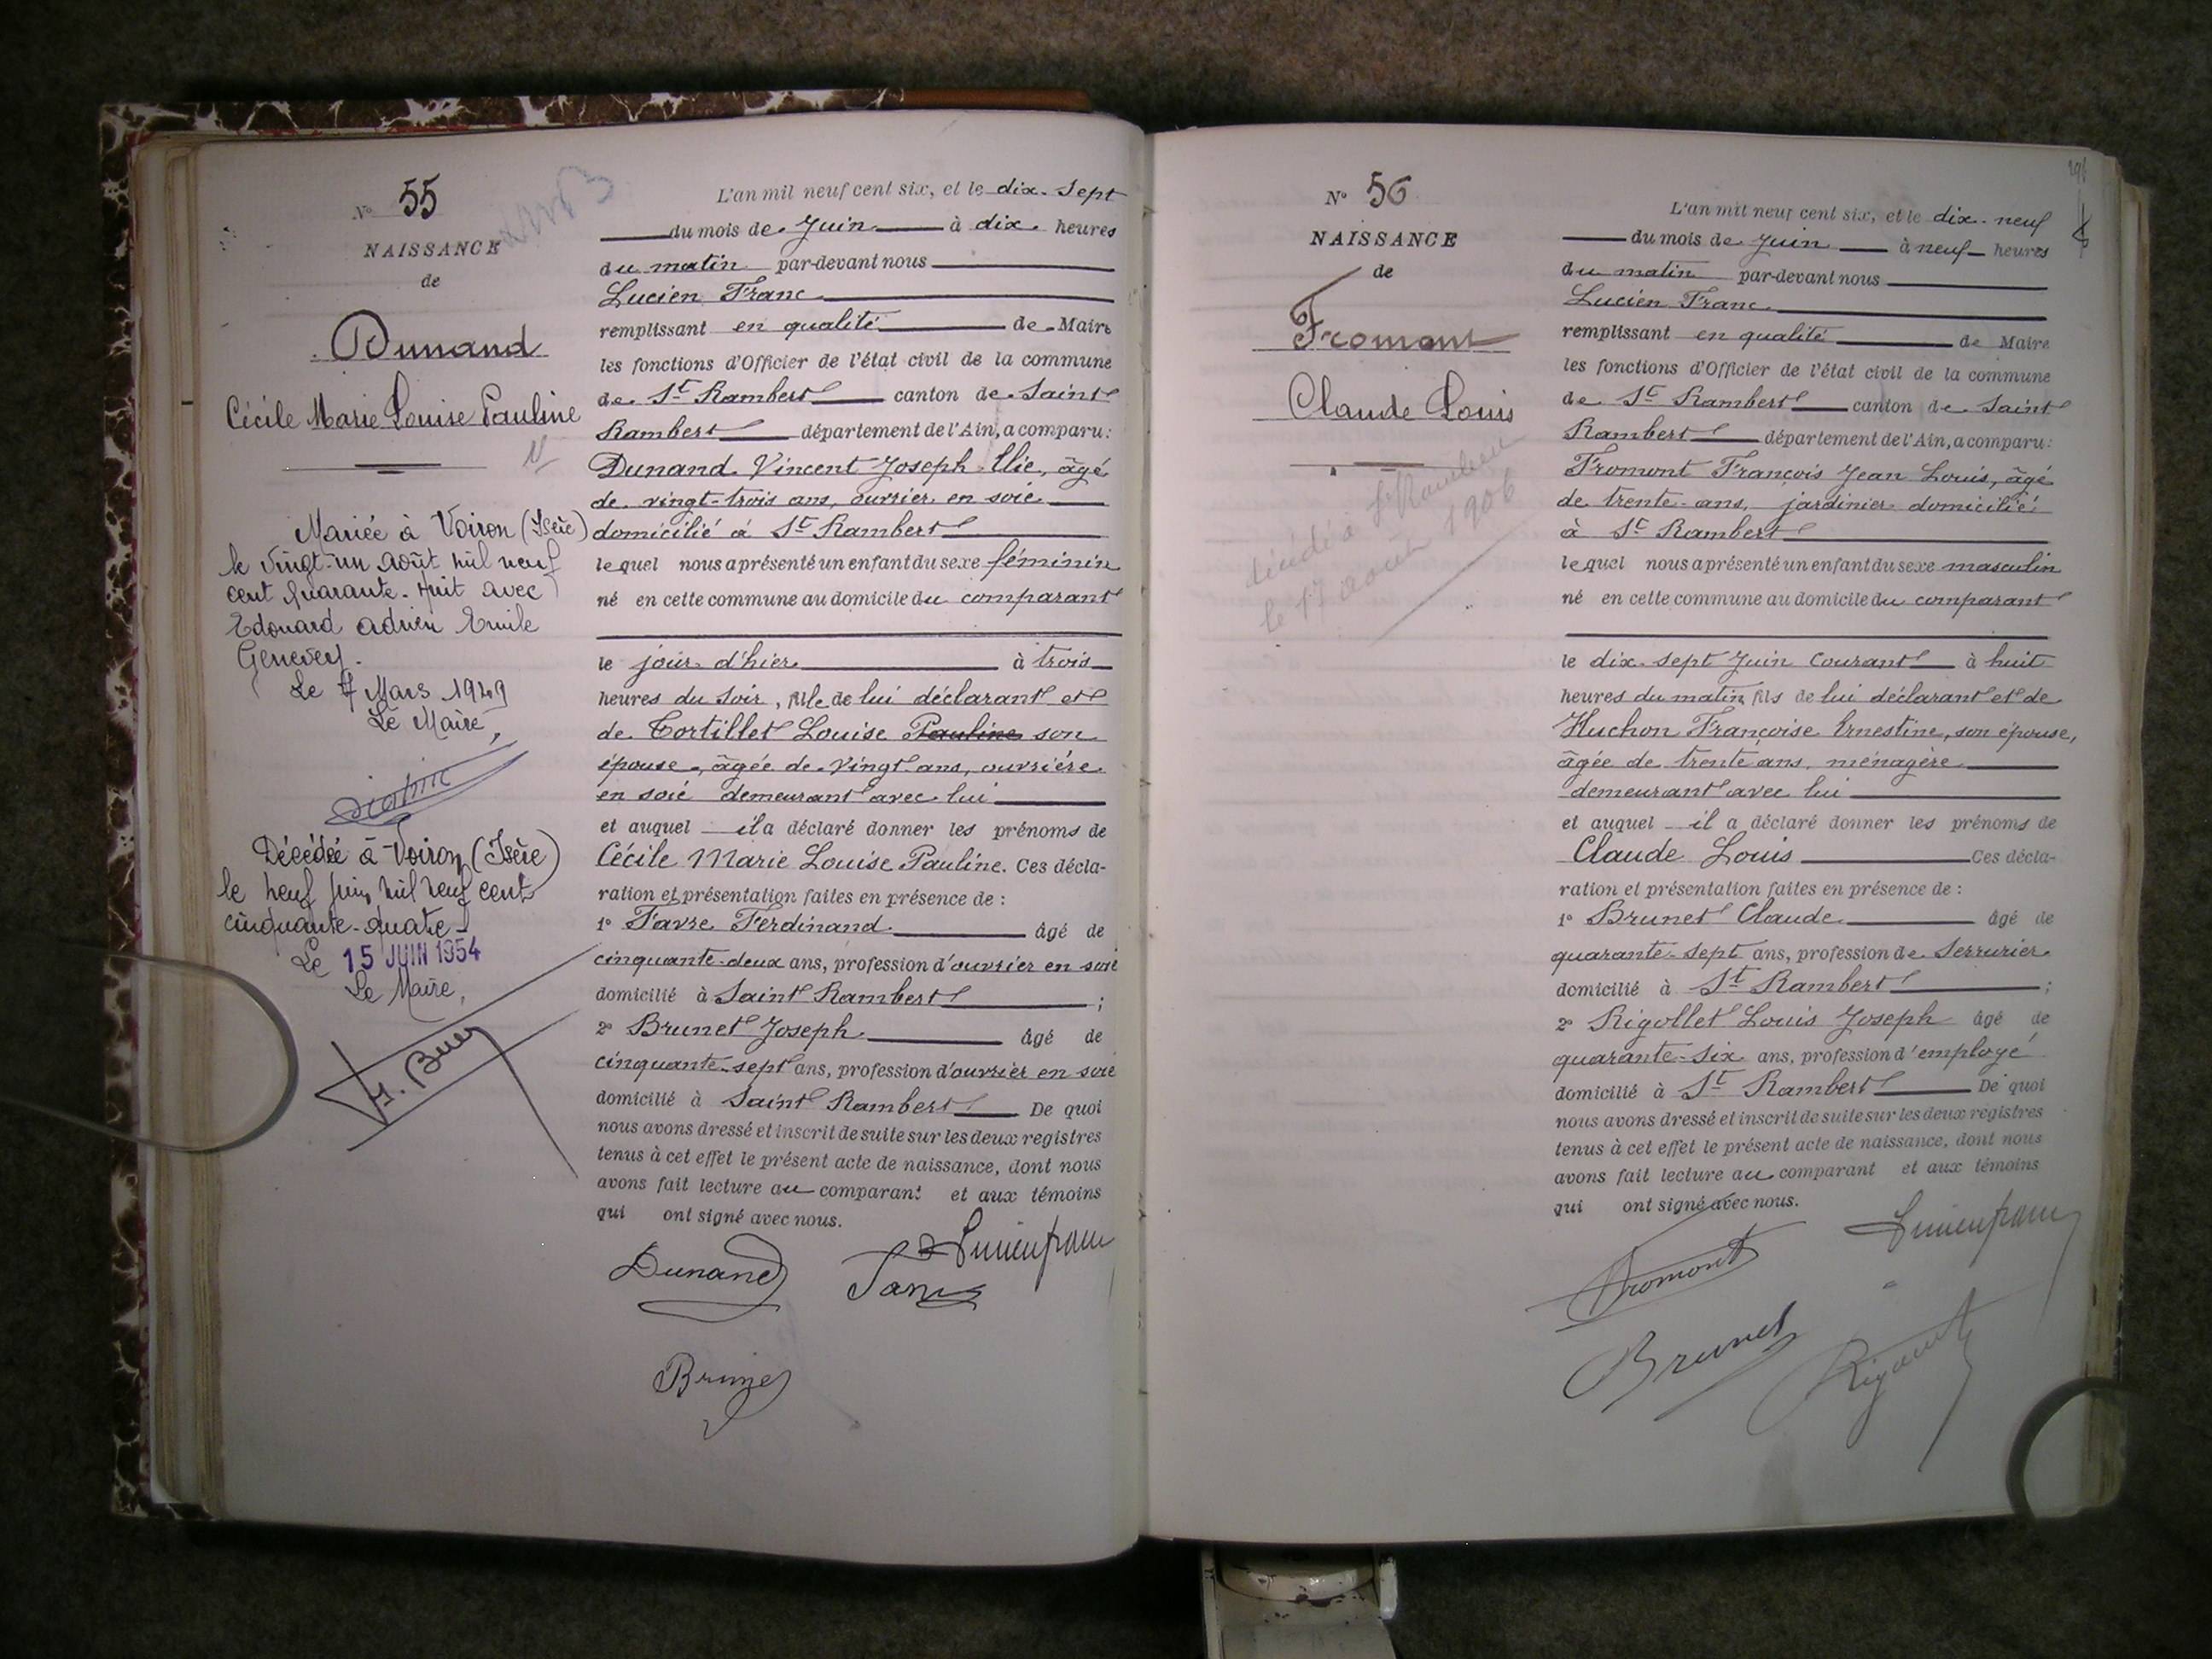 N° 55
NAISSANCE
de
Dunand
Cécile Marie Louise Pauline
Mariée à Voiron (Isère)
le vingt-un août mil neuf
cent quarante-huit avec
Edouard Adrien Emile
Genevey.
Le 7 Mars 1949
Le Maire,
Décédée à Voiron (Isère)
le neuf juin mil neuf cent
cinquante-quatre
Le 15 JUIN 1954
Le Maire,
L'an mil neuf cent six, et le dix-sept
du mois de Juin à dix heures
du matin par-devant nous
Lucien Franc
remplissant en qualité de Maire
les fonctions d'Officier de l'état civil de la commune
de St Rambert canton de Saint
Rambert département de l'Ain, a comparu:
Dunand Vincent Joseph Elie, âgé
de vingt-trois ans, ouvrier en soie
domicilié à St Rambert
lequel nous a présenté un enfant du sexe féminin
né en cette commune au domicile du comparant
le jour d'hier à trois
heures du soir, fille de lui déclarant et
de Tortillet Louise Pauline son
épouse, âgée de vingt ans, ouvrière
en soie demeurant avec lui
et auquel il a déclaré donner les prénoms de
Cécile Marie Louise Pauline. Ces décla-
ration et présentation faites en présence de :
1° Favre Ferdinand âgé de
cinquante-deux ans, profession d'ouvrier en soie
domicilié à Saint Rambert ;
2° Brunet Joseph âgé de
cinquante-sept ans, profession d'ouvrier en soie
domicilié à Saint Rambert De quoi
nous avons dressé et inscrit de suite sur les deux registres
tenus à cet effet le présent acte de naissance, dont nous
avons fait lecture au comparant et aux témoins
qui ont signé avec nous.
Dunand Lucien franc
Brunet
N° 56
NAISSANCE
de
Fromont
Claude Louis
décédé à St Rambert
le 17 août 1906
L'an mil neuf cent six, et le dix-neuf
du mois de Juin à neuf heures
du matin par-devant nous
Lucien Franc
remplissant en qualité de Maire
les fonctions d'Officier de l'état civil de la commune
de St Rambert canton de Saint
Rambert département de l'Ain, a comparu:
Fromont François Jean Louis, âgé
de trente ans, jardinier domicilié
à St Rambert
lequel nous a présenté un enfant du sexe masculin
né en cette commune au domicile du comparant
le dix-sept Juin courant à huit
heures du matin fils de lui déclarant et de
Huchon Françoise Ernestine, son épouse,
âgée de trente ans, ménagère
demeurant avec lui
et auquel il a déclaré donner les prénoms de
Claude Louis Ces décla-
ration et présentation faites en présence de :
1° Brunet Claude âgé de
quarante-sept ans, profession de Serrurier
domicilié à St Rambert ;
2° Rigollet Louis Joseph âgé de
quarante-six ans, profession d'employé
domicilié à St Rambert De quoi
nous avons dressé et inscrit de suite sur les deux registres
tenus à cet effet le présent acte de naissance, dont nous
avons fait lecture au comparant et aux témoins
qui ont signé avec nous.
Fromont Lucien franc
Brunet